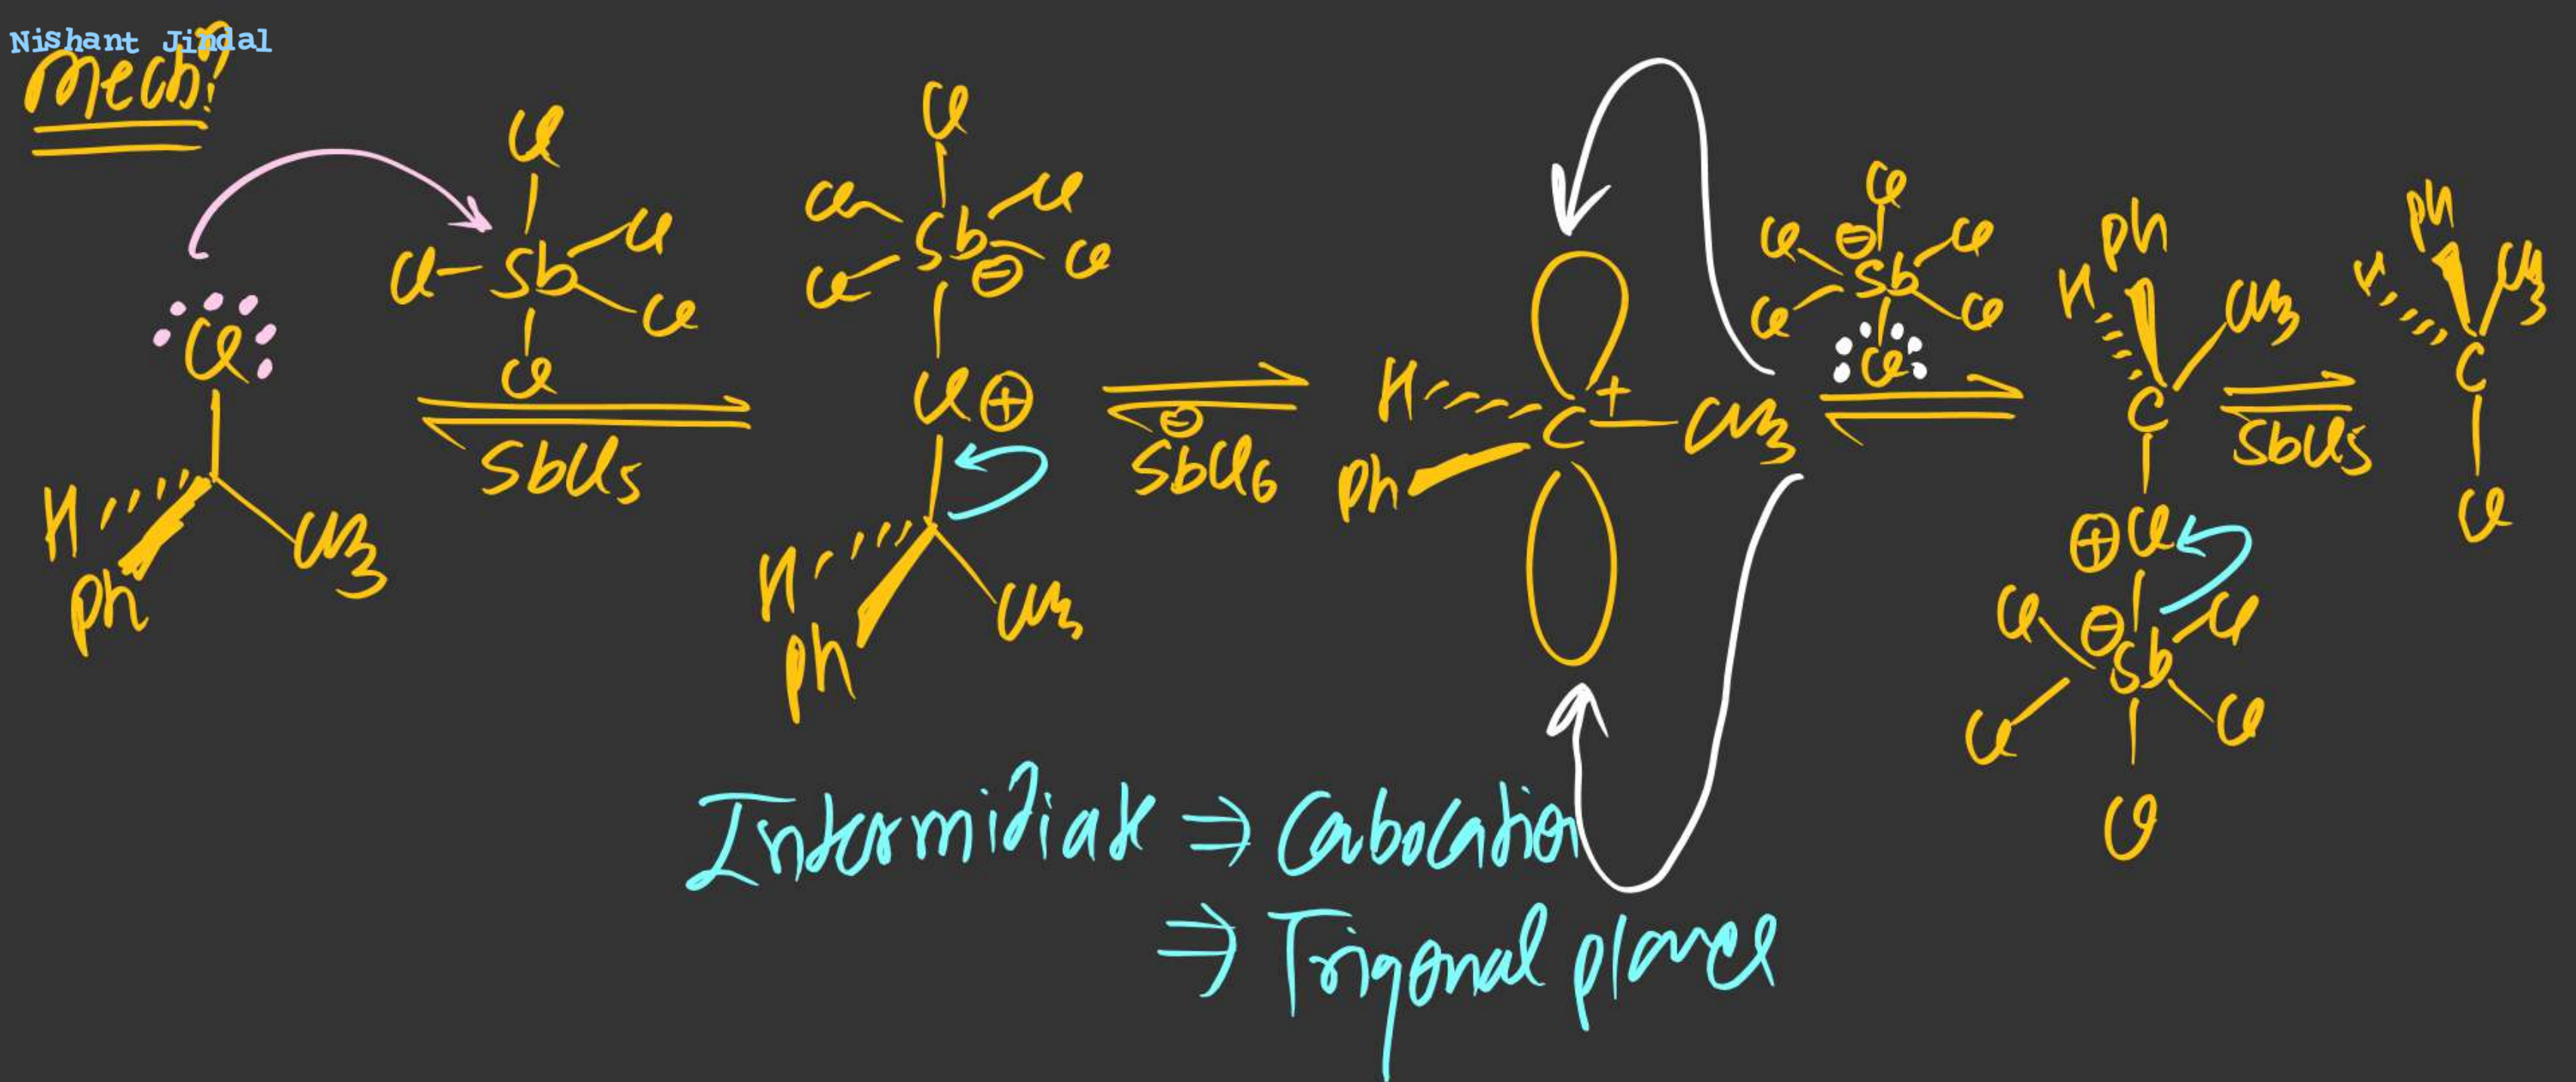 Nishant Jindal
Mech?
Cl
Cl Sb Cl
Cl
Cl
Cl
H
Ph
CH3
SbCl5
Cl
Cl Cl
Sb
Cl ⊖ Cl
Cl ⊕
H
Ph
CH3
⊖
SbCl6
H
Ph
C + CH3
Cl
Cl ⊖ Cl
Sb
Cl Cl
Cl
Ph
H CH3
C
⊕ Cl
Cl ⊖ Cl
Sb
Cl Cl
Cl
SbCl5
Ph
H CH3
C
Cl
Intermidiate ⇒ Carbocation
⇒ Trigonal planer